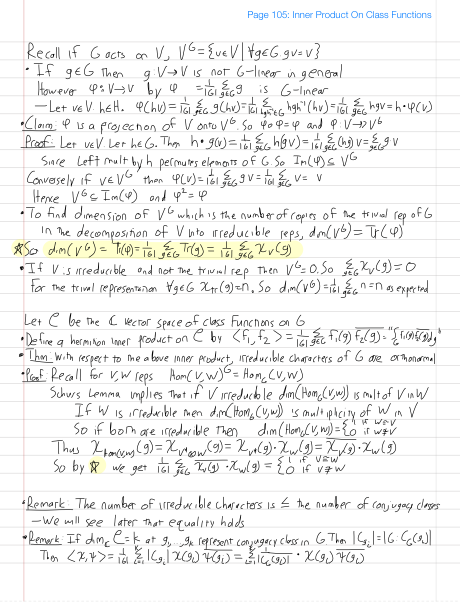 Page 105: Inner Product On Class Functions
Recall if G acts on V, V^G = {v∈V | ∀g∈G gv=v}
• If g∈G Then g:V→V is not G-linear in general
However φ:V→V by φ = 1/|G| Σ_{g∈G} g is G-linear
– Let v∈V h∈H. φ(hv) = 1/|G| Σ_{g∈G} g(hv) = 1/|G| Σ_{hgh⁻¹∈G} hgh⁻¹(hv) = 1/|G| Σ_{g∈G} hgv = h·φ(v)
• Claim: φ is a projection of V onto V^G. So φ∘φ=φ and φ:V→V^G
Proof: Let v∈V. Let h∈G. Then h·φ(v) = 1/|G| Σ_{g∈G} h(gv) = 1/|G| Σ_{g∈G} (hg)v = 1/|G| Σ_{g∈G} gv
Since left mult by h permutes elements of G. So Im(φ) ⊆ V^G
Conversely if v∈V^G then φ(v) = 1/|G| Σ_{g∈G} gv = 1/|G| Σ_{g∈G} v = v
Hence V^G ⊆ Im(φ) and φ²=φ
• To find dimension of V^G which is the number of copies of the trivial rep of G
in the decomposition of V into irreducible reps, dim(V^G) = Tr(φ)
★So dim(V^G) = Tr(φ) = 1/|G| Σ_{g∈G} Tr(g) = 1/|G| Σ_{g∈G} χ_V(g)
• If V is irreducible and not the trivial rep then V^G=0. So Σ_{g∈G} χ_V(g)=0
For the trivial representation ∀g∈G χ_tr(g)=n. So dim(V^G) = 1/|G| Σ_{g∈G} n = n as expected
Let C be the ℂ vector space of class functions on G
• Define a hermitian inner product on C by <f₁,f₂> = 1/|G| Σ_{g∈G} f₁(g) \overline{f₂(g)} = "∫_G f₁(g)\overline{f₂(g)}dg"
• Thm: With respect to the above inner product, irreducible characters of G are orthonormal
• Proof: Recall for V,W reps Hom(V,W)^G = Hom_G(V,W)
Schurs Lemma implies that if V irreducible dim(Hom_G(V,W)) is mult of V in W
If W is irreducible then dim(Hom_G(V,W)) is multiplicity of W in V
So if both are irreducible then dim(Hom_G(V,W)) = {1 if V≅W, 0 if V≇W
Thus χ_{Hom(V,W)}(g) = χ_{V*⊗W}(g) = χ_{V*}(g)·χ_W(g) = \overline{χ_V(g)}·χ_W(g)
So by ★ we get 1/|G| Σ_{g∈G} \overline{χ_V(g)}·χ_W(g) = {1 if V≅W, 0 if V≇W
• Remark: The number of irreducible characters is ≤ the number of conjugacy classes
– We will see later that equality holds
• Remark: If dim_ℂ C = k at g₁,…g_k represent conjugacy class in G Then |C_{g_i}| = |G:C_G(g_i)|
Then <χ,ψ> = 1/|G| Σ_{i=1}^k |C_{g_i}| χ(g_i) \overline{ψ(g_i)} = Σ_{i=1}^k 1/|C_G(g_i)| · χ(g_i) \overline{ψ(g_i)}